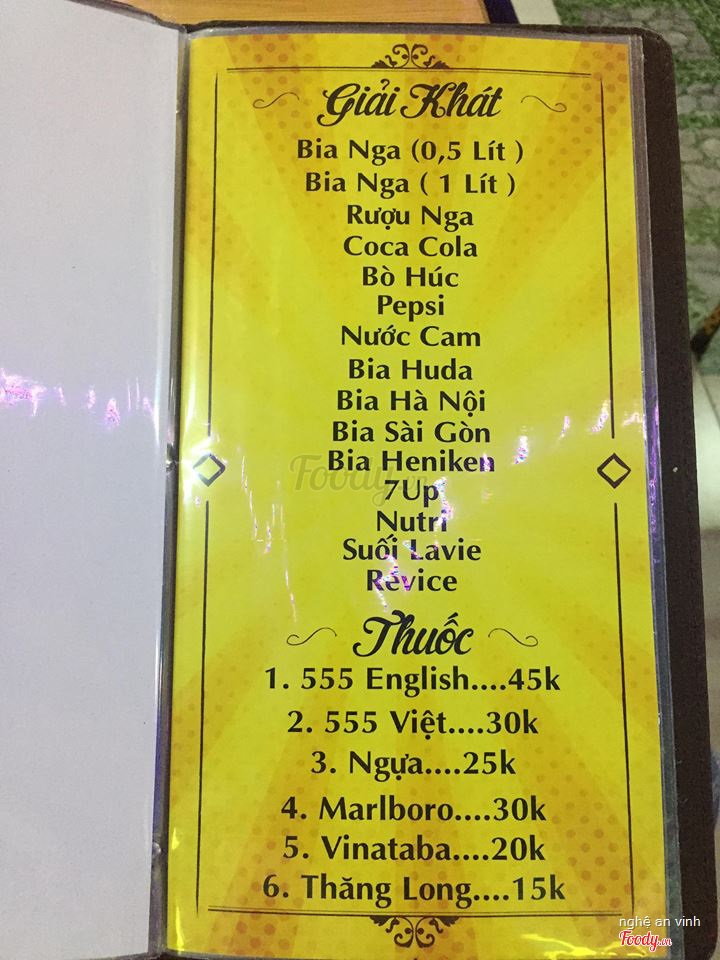 Giải Khát
Bia Nga (0,5 Lít )
Bia Nga ( 1 Lít )
Rượu Nga
Coca Cola
Bò Húc
Pepsi
Nước Cam
Bia Huda
Bia Hà Nội
Bia Sài Gòn
Bia Heniken
Foody.vn
7Up
Nutri
Suối Lavie
Revice
Thuốc
1. 555 English....45k
2. 555 Việt....30k
3. Ngựa....25k
4. Marlboro....30k
5. Vinataba....20k
6. Thăng Long....15k
nghệ an vinh
Foody.vn